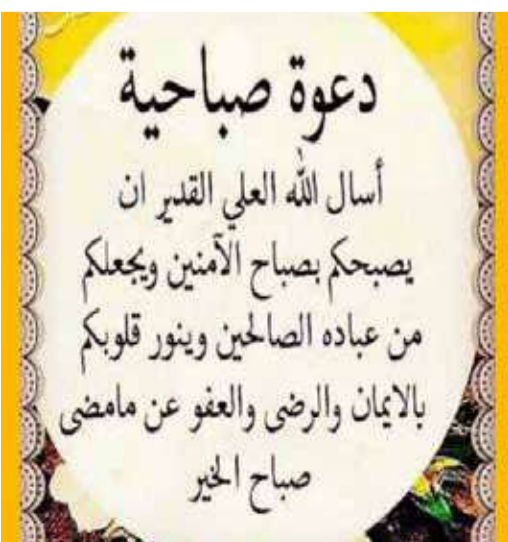 دعوة صباحية
أسال الله العلي القدير ان
يصبحكم بصباح الآمنين ويجعلكم
من عباده الصالحين وينور قلوبكم
بالايمان والرضى والعفو عن مامضى
صباح الخير